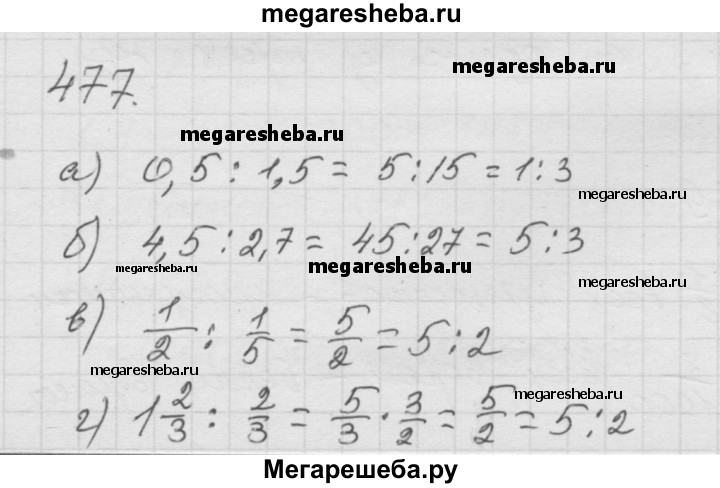 megaresheba.ru
477.
megaresheba.ru
megaresheba.ru
а) 0,5 : 1,5 = 5 : 15 = 1 : 3
megaresheba.ru
б) 4,5 : 2,7 = 45 : 27 = 5 : 3
megaresheba.ru
megaresheba.ru
в) 1/2 : 1/5 = 5/2 = 5 : 2
megaresheba.ru
megaresheba.ru
г) 1 2/3 : 2/3 = 5/3 · 3/2 = 5/2 = 5 : 2
Мегарешеба.ру